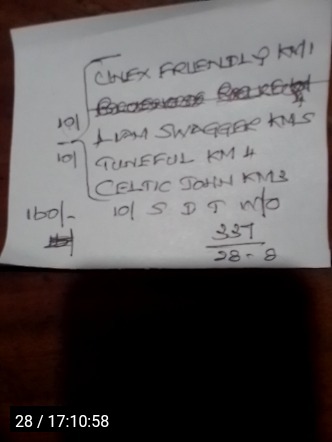 CINEX FRIENDLY KM1
10/ LIAM SWAGGER KM5
10/ TUNEFUL KM4
CELTIC JOHN KM3
160/- 10/ S D T W/O
337
28 - 8
28 / 17:10:58